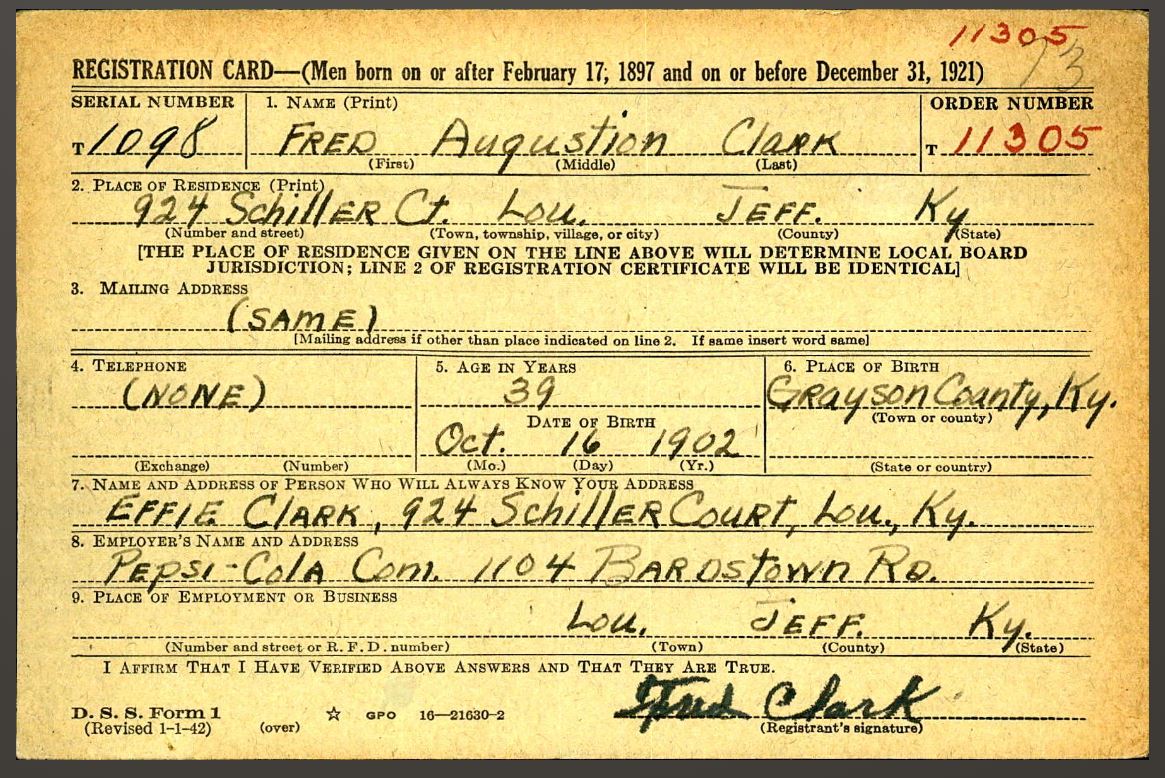 11305
73
REGISTRATION CARD—(Men born on or after February 17, 1897 and on or before December 31, 1921)
SERIAL NUMBER 1. NAME (Print) ORDER NUMBER
T 1098 FRED Augustion Clark T 11305
(First) (Middle) (Last)
2. PLACE OF RESIDENCE (Print)
924 Schiller Ct. Lou. Jeff. Ky
(Number and street) (Town, township, village, or city) (County) (State)
[THE PLACE OF RESIDENCE GIVEN ON THE LINE ABOVE WILL DETERMINE LOCAL BOARD
JURISDICTION; LINE 2 OF REGISTRATION CERTIFICATE WILL BE IDENTICAL]
3. MAILING ADDRESS
(SAME)
[Mailing address if other than place indicated on line 2. If same insert word same]
4. TELEPHONE 5. AGE IN YEARS 6. PLACE OF BIRTH
(NONE) 39 Grayson County, Ky.
DATE OF BIRTH (Town or county)
Oct. 16 1902
(Exchange) (Number) (Mo.) (Day) (Yr.) (State or country)
7. NAME AND ADDRESS OF PERSON WHO WILL ALWAYS KNOW YOUR ADDRESS
EFFIE Clark, 924 Schiller Court, Lou., Ky.
8. EMPLOYER'S NAME AND ADDRESS
Pepsi-Cola Com. 1104 Bardstown Rd.
9. PLACE OF EMPLOYMENT OR BUSINESS
Lou. Jeff. Ky.
(Number and street or R. F. D. number) (Town) (County) (State)
I AFFIRM THAT I HAVE VERIFIED ABOVE ANSWERS AND THAT THEY ARE TRUE.
Fred Clark
D. S. S. Form 1 ☆ GPO 16—21630-2
(Revised 1-1-42) (over) (Registrant's signature)